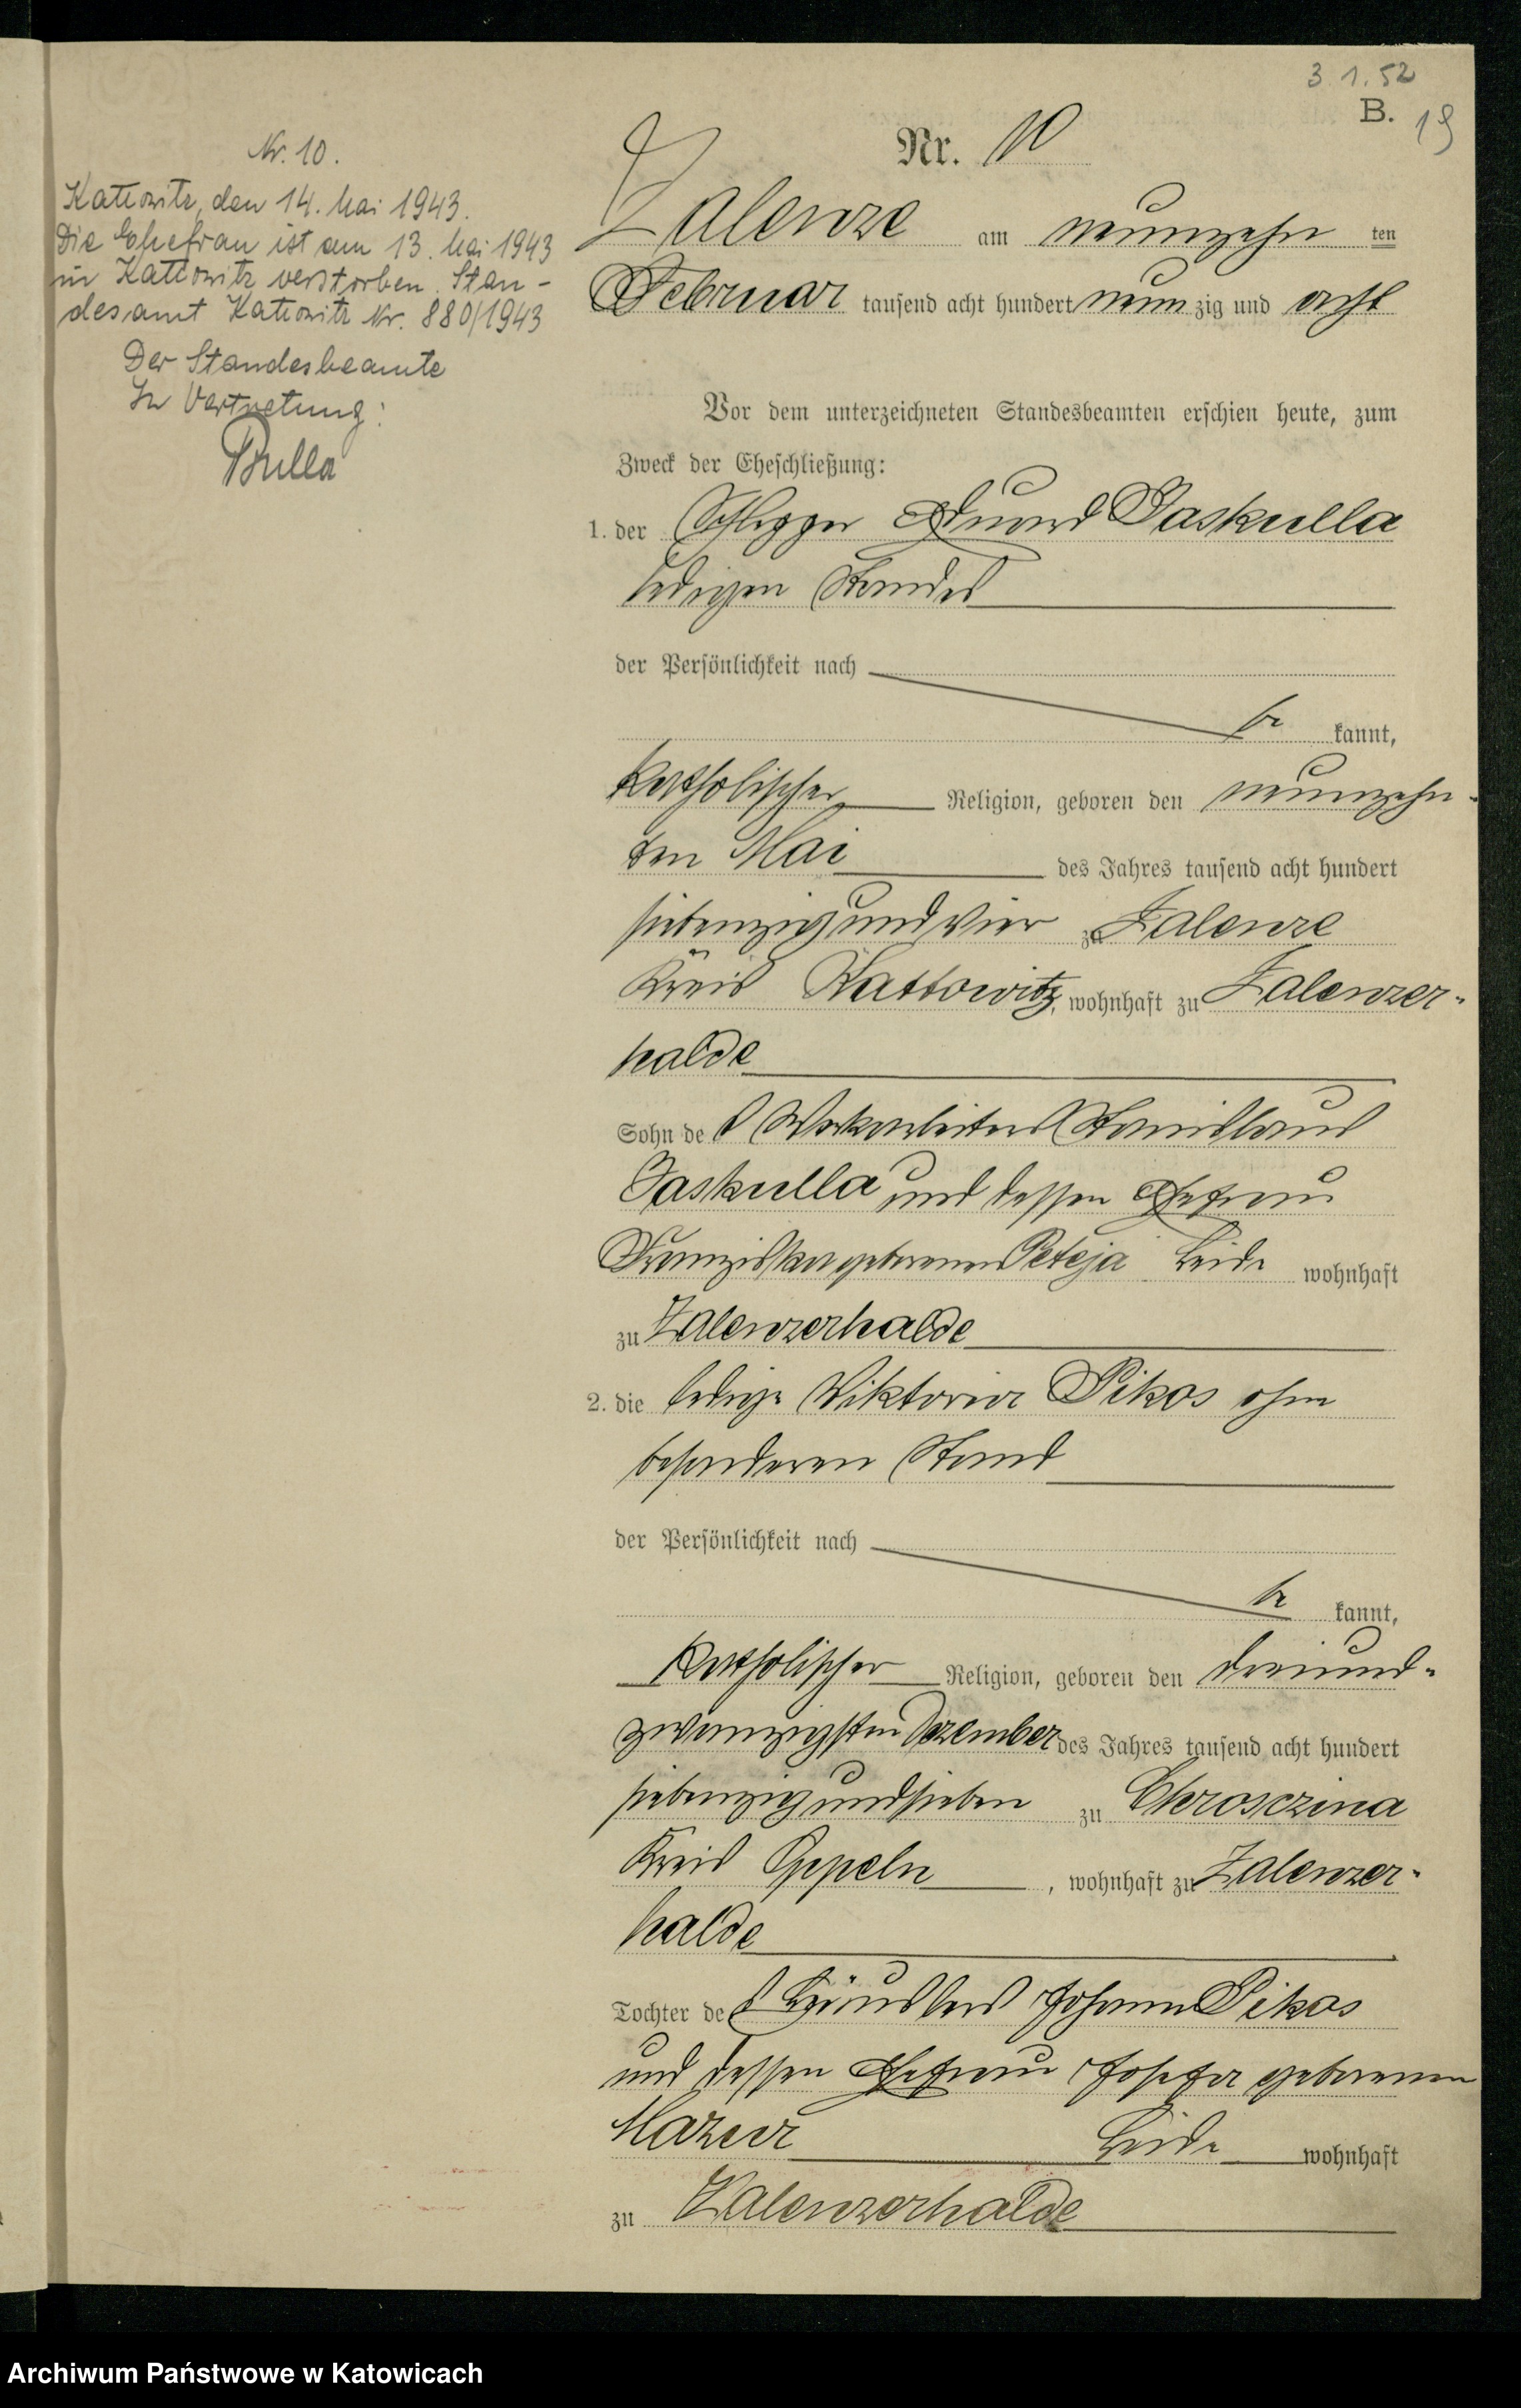 3. 1. 52
B.
19
Nr. 10.
Kattowitz, den 14. Mai 1943.
Die Ehefrau ist am 13. Mai 1943
in Kattowitz verstorben. Stan-
desamt Kattowitz Nr. 880/1943
Der Standesbeamte
In Vertretung:
Bulla
Nr. 10
Zalenze am neunzehn ten
Februar tausend acht hundert neun zig und acht
Vor dem unterzeichneten Standesbeamten erschien heute, zum
Zweck der Eheschließung:
1. der Schlepper Eduard Jaskulla
ledigen Standes
der Persönlichkeit nach
be kannt,
katholischer Religion, geboren den neunzehn-
ten Mai des Jahres tausend acht hundert
siebenzig und vier zu Zalenze
Kreis Kattowitz, wohnhaft zu Zalenzer-
halde
Sohn des Werkarbeiters Stanislaus
Jaskulla und dessen Ehefrau
Franziska geborenen Peteja beide wohnhaft
zu Zalenzerhalde
2. die ledige Viktoria Pikos ohne
besonderen Stand
der Persönlichkeit nach
be kannt,
katholischer Religion, geboren den dreiund-
zwanzigsten Dezember des Jahres tausend acht hundert
siebenzig und sieben zu Chrosczina
Kreis Oppeln, wohnhaft zu Zalenzer-
halde
Tochter des Häuslers Johann Pikos
und dessen Ehefrau Josefa geborenen
Mazur beide wohnhaft
zu Zalenzerhalde
Archiwum Państwowe w Katowicach